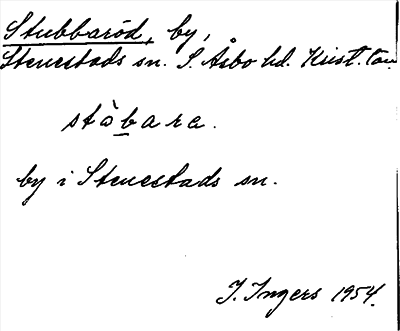 Stubbaröd, by,
Stenestads sn. S. Åsbo hd. Krist. län
stàbare.
by i Stenestads sn.
I. Ingers 1954.